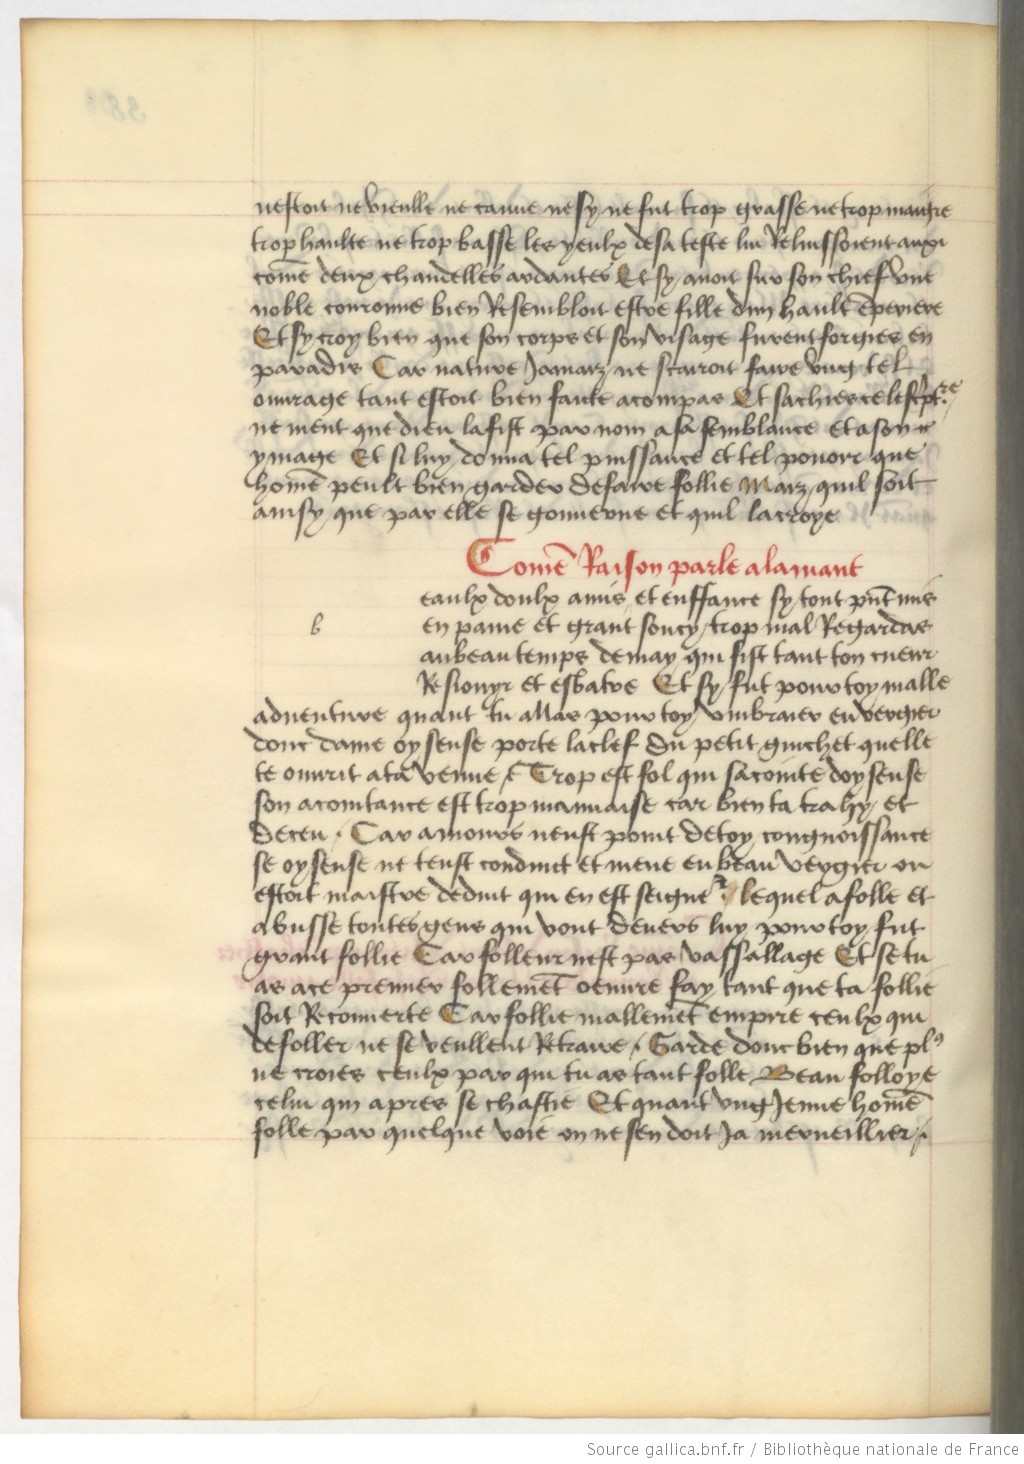 nestoit ne vieulle ne canue ne sy ne fut trop grasse ne trop maigre
trop haulte ne trop basse les yeulx de sa teste lui Reluissoient auxi
cōme deux chandelles ardantes Et sy auoit sur son chief vne
noble couronne bien Resembloit estre fille dun hault ēperiere
Et sy croy bien que son corps et son visage furent forgies en
paradis Car nature Jamaiz ne scairoit faire vng tel
ouurage tant estoit bien faicte a compas Et sachies ce lescr̄ipture
ne ment que dieu la fist par nom a sa semblance et a son
ymage Et si luy donna tel puissance et tel pouoir que
homē peult bien garder de faire follie Maiz quil soit
ainsy que par elle se gouuerne et quil la croye
Comē Raison parle a lamant
eaulx doulx amis et enffance sy tont pn̄t mis
b
en paine et grant soucy trop mal Regardas
au beau temps de may qui fist tant ton cueur
Resiouyr et esbatre Et sy fut pour toy malle
aduenture quant tu allas pour toy vmbraier en vergier
donc dame oyseuse porte la clef Du petit guichet quelle
te ouurit a ta venue Trop est fol qui sacointe doyseuse
son acointance est trop mauuaise car bien ta trahy et
deceu . Car amours neust point de toy congnoissance
se oyseuse ne teust conduit et mene en beau vergier ou
estoit maistre deduit qui en est seigner lequel afolle et
abusse toutes gens qui vont deuers luy pour toy fut
grant follie Car folleur nest pas vassallage Et se tu
as a ce premier follemēt oeuure fay tant que ta follie
soit Recouuerte Car follie mallemēt empire ceulx qui
de foller ne se veullent Retraire . Garde donc bien que pl9
ne croies ceulx par qui tu as tant folle Beau folloye
celui qui apres se chastie Et quant vng Jenne homē
folle par quelque voie on ne sen doit Ja merueillier .